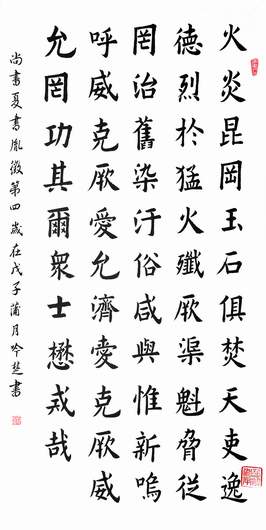 火炎昆岡玉石俱焚天吏逸
德烈於猛火殲厥渠魁脅從
罔治舊染汙俗咸與惟新嗚
呼威克厥愛允濟愛克厥威
允罔功其爾眾士懋戒哉
尚書夏書胤徵第四歲在戊子蒲月吟楚書